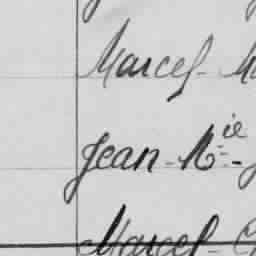 Marcel-
Jean-Mie-
Marcel-